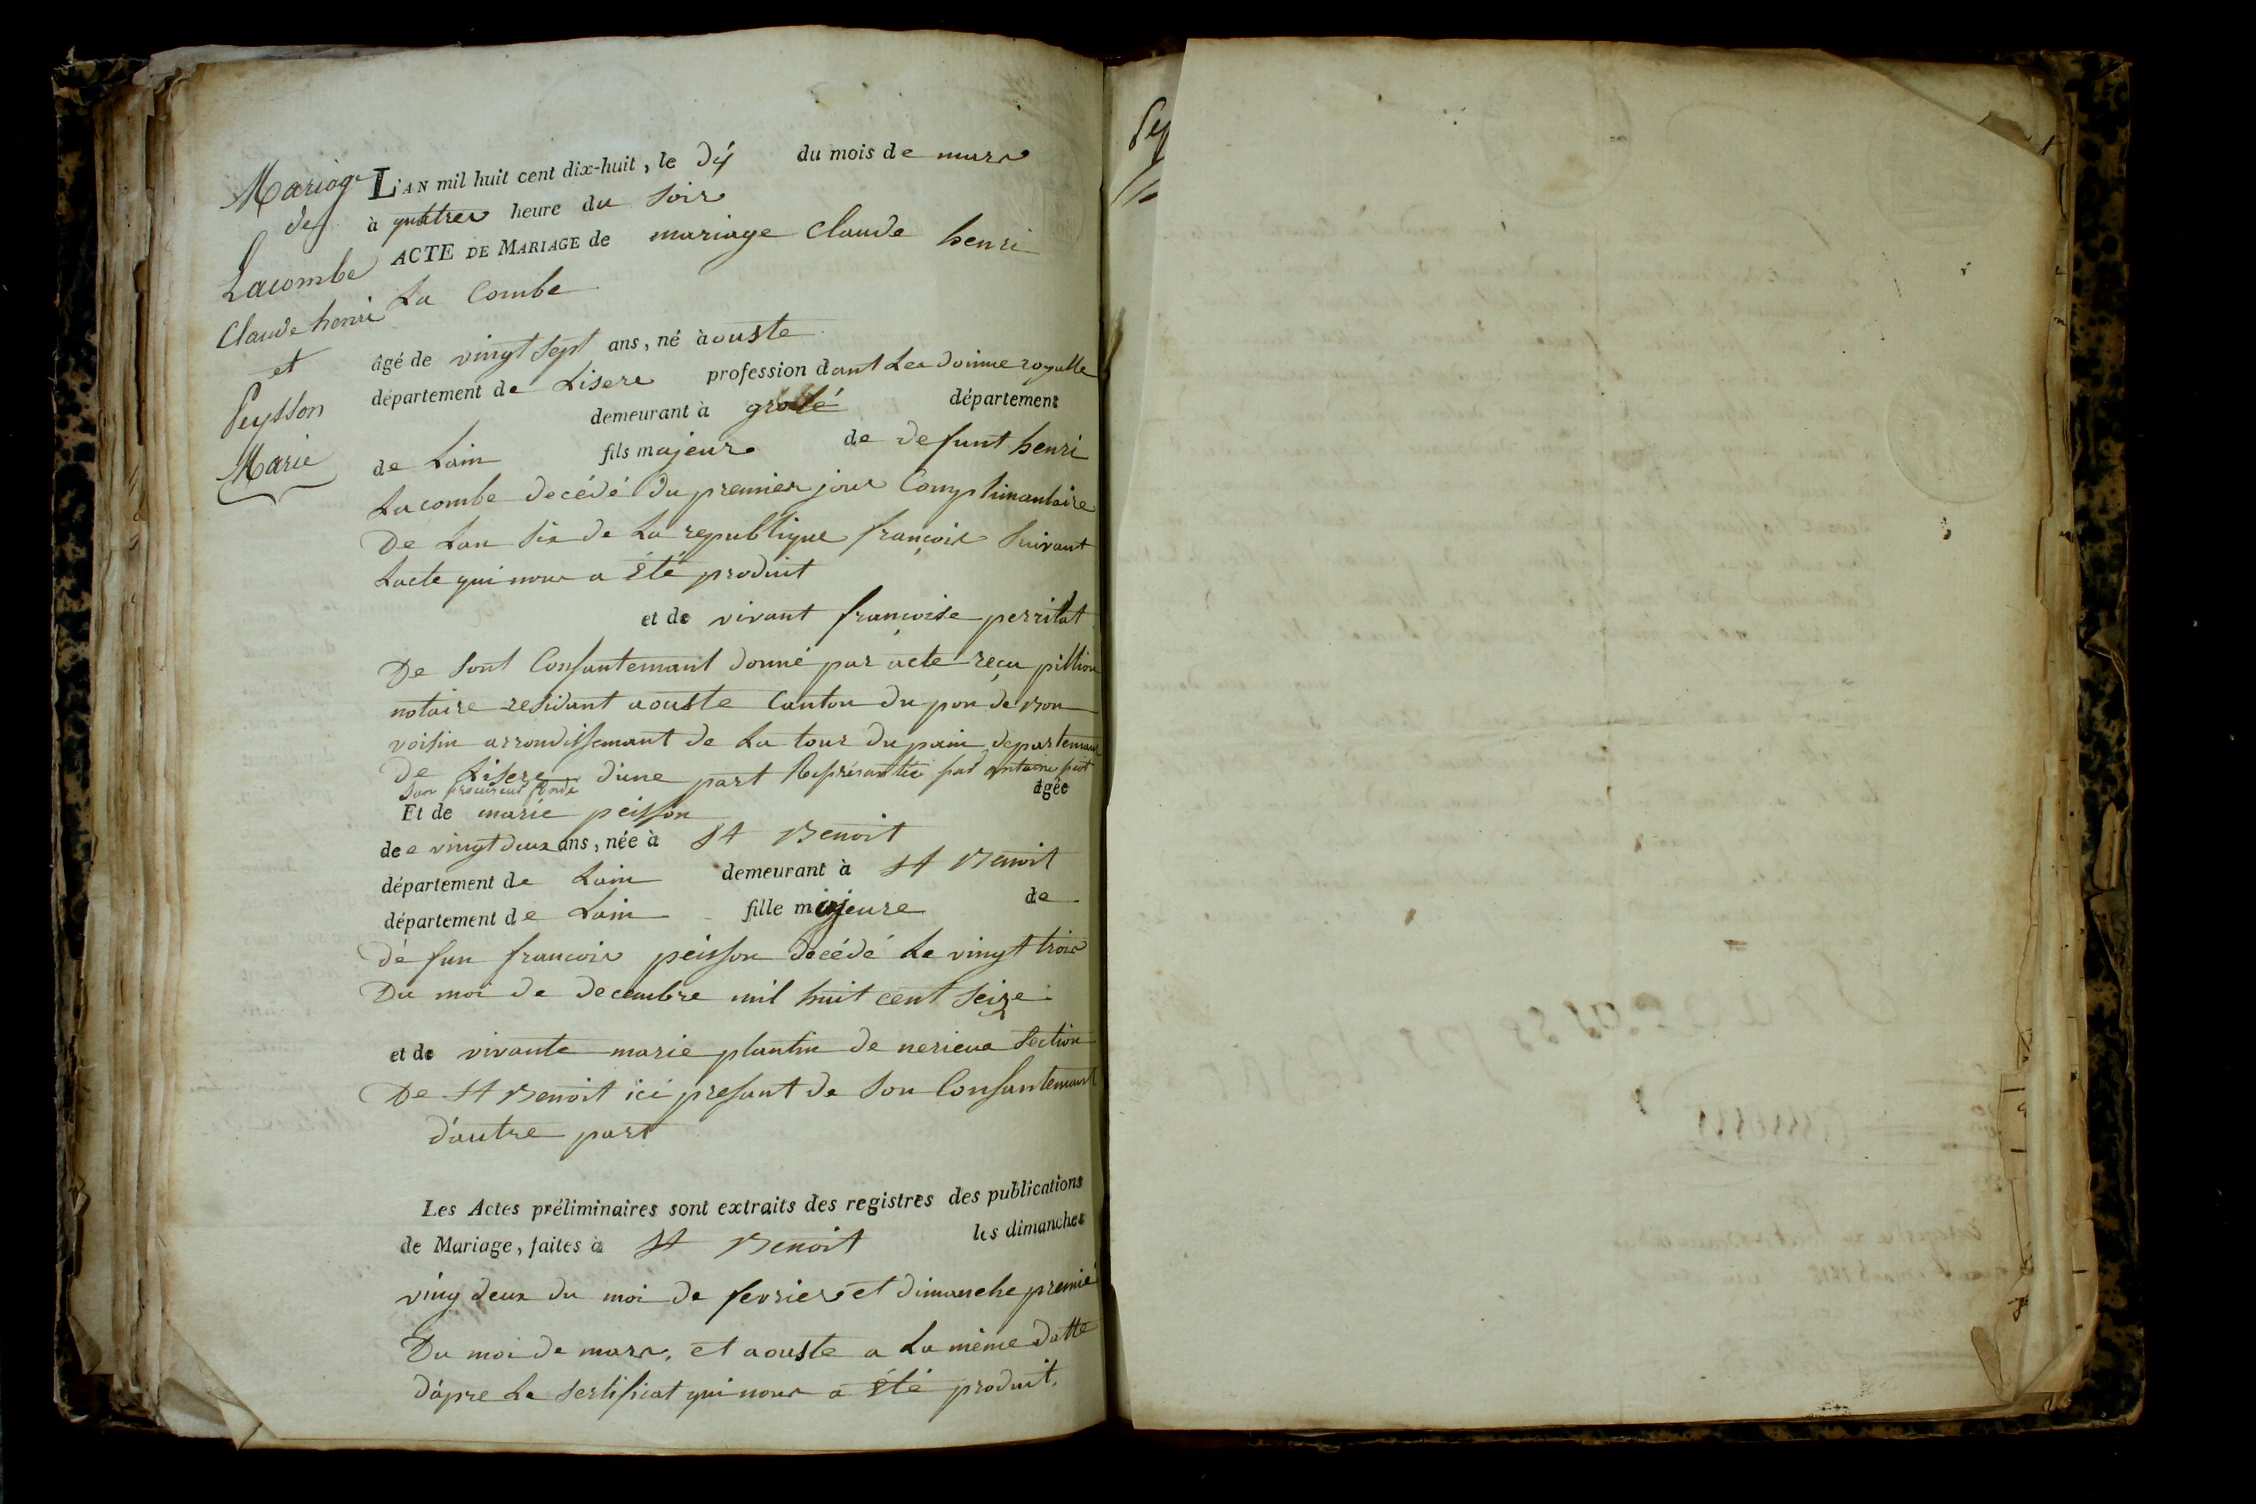 Mariage
de
Lacombe
Claude henri
et
Peysson
Marie
L'AN mil huit cent dix-huit, le dix du mois de mars
à quatres heure du Soir
ACTE DE MARIAGE de mariage Claude henri
La Combe
âgé de vingt sept ans, né à ouste
département de Lisere profession dant Les doinne royalle
demeurant à grolé département
de Lain fils majeure de defunt henri
Lacombe decédé du premier jour Complimantaire
De Lan Six de La republique françois Suivant
Lacte qui nous a Été produit
et de vivant francoise perritat
De Sont Consantemant donné par acte reçu pillion
notaire residant aouste Canton du pon de Bon
voisin arrondissemant de La tour du pain departemant
De Lisere d'une part Représantée par antoine
Son procureur fondé
Et de marie peisson agée
dee vingt deux ans, née à St Benoit
département de Lain demeurant à St Benoit
département de Lain fille majeure de
dé fun francois peisson decédé Le vingt trois
Du moi de decembre mil huit cent Seize
et de vivante marie plantin de nerieux Section
De St Benoit ici presant de Son Consantemant
d'autre part
Les Actes préliminaires sont extraits des registres des publications
de Mariage, faites à St Benoit les dimanches
ving deux du moi de fevrier et dimanche premié
Du moi de mars, et aouste a La même datte
d'apre Le Sertificat qui nous a Été produit.